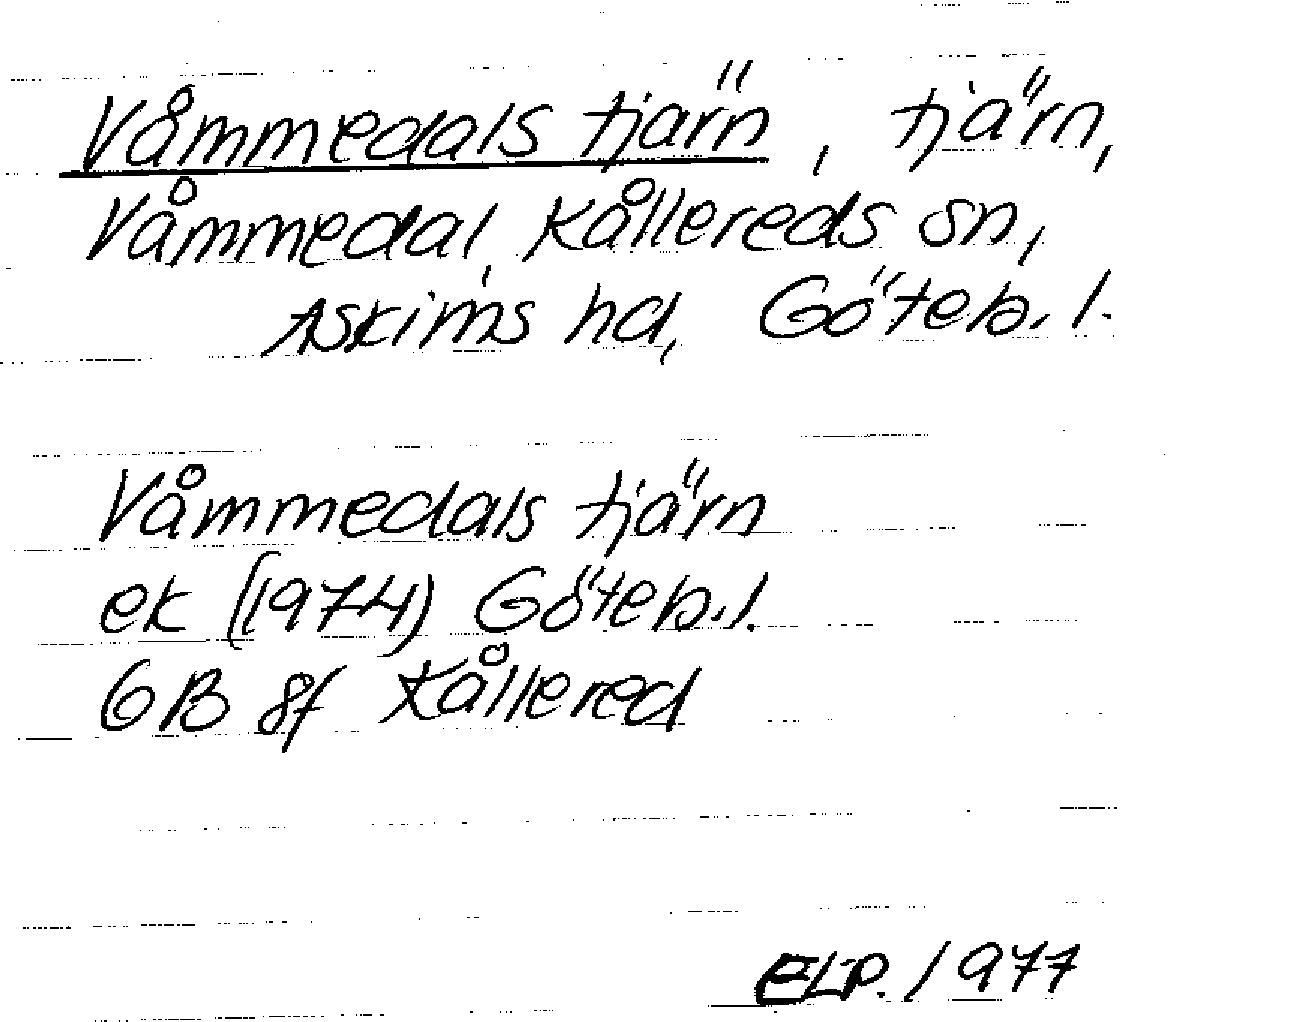 Våmmedals tjärn, tjärn,
Våmmedal, Kållereds sn,
Askims hd, Göteb. l.
Våmmedals tjärn
ek (1974) Göteb. l.
GB sf Kållered
ELP. 1977